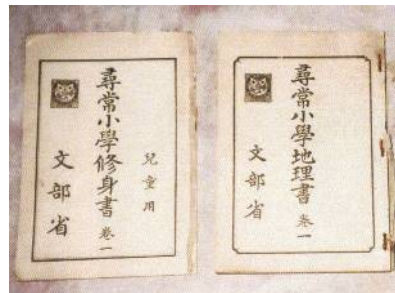 兒童用
尋常小學修身書 卷一
文部省
尋常小學地理書 卷一
文部省